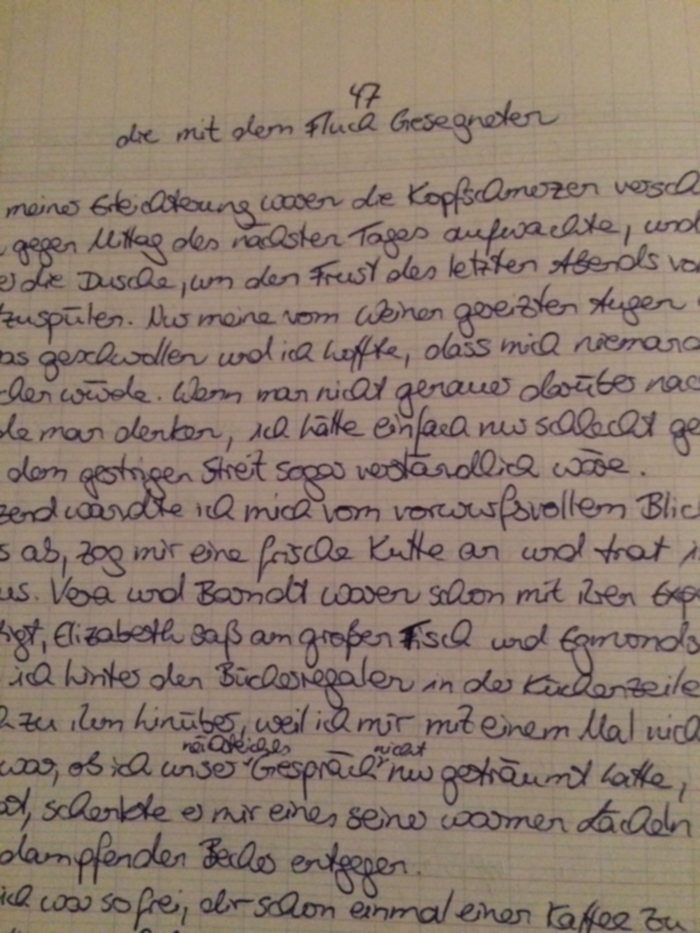 47
die mit dem Fluch Gesegneten
meiner Erleichterung waren die Kopfschmerzen versch
gegen Mittag des nächsten Tages aufwachte, und
die Dusche, um den Frust des letzten Abends vo
zuspülen. Nur meine vom Weinen gereizten Augen
as geschwollen und ich hoffte, dass mich niemand
chen würde. Wenn man nicht genauer darüber nac
de man denken, ich hätte einfach nur schlecht ge
dem gestrigen Streit sogar verständlich wäre.
zend wandte ich mich vom vorwurfsvollem Blick
s ab, zog mir eine frische Kutte an und trat
us. Vera und Barndt waren schon mit ihren Exp
tigt, Elizabeth saß am großen Tisch und Egmonds
ich hinter den Bücherregalen in der Küchenzeile
zu ihm hinüber, weil ich mir mit einem Mal nich
nächtliches nicht
war, ob ich unser Gespräch nur geträumt hatte,
schenkte er mir eines seiner warmen Lächeln
dampfenden Becher entgegen.
ich war so frei, dir schon einmal einen Kaffee zu